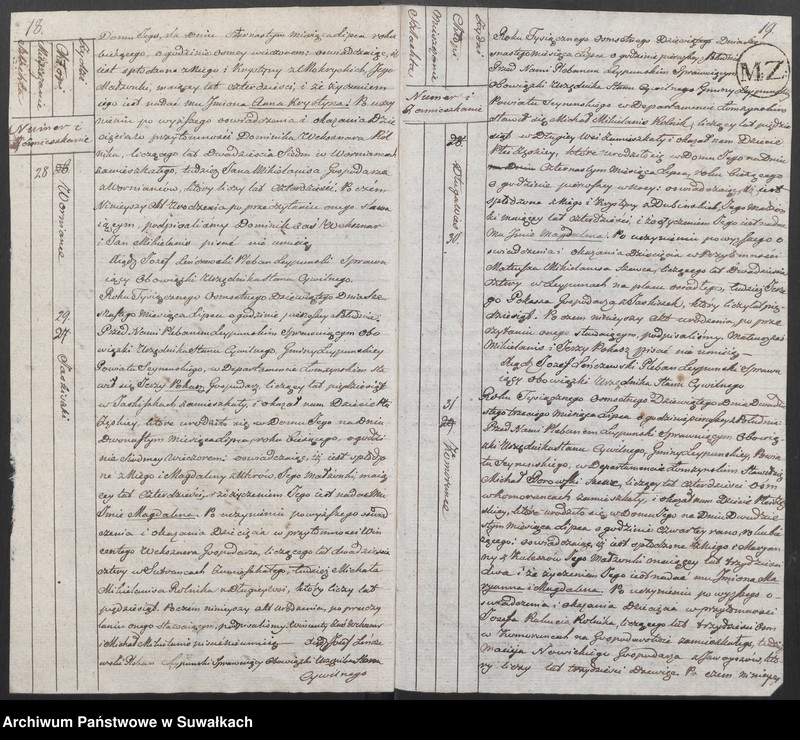 18.
Numer i
Zamieszkanie
28 Wornianie
29 Jaskiski
Domu Jego, na dniu czternastym miesiąca Lipca roku
bieżącego, o godzinie osmej wieczorem; oswiadczaiąc, iż
iest spłodzone z Niego i Krystyny z Mokryckich, Jego
Małżonki, maiącey lat czterdzieści; i że życzeniem
iego iest nadać mu Imiona Anna Krystyna. Po uczy
nieniu powyższego oswiadczenia i okazania Dzie
cięcia w przytomności Dominika Wchoznara Rol
nika, liczącego lat dwadzieścia siedm w Wornianach
zamieszkałego, tudzież Jana Mikielanisa Gospodarza
z Wornianów, który liczy lat czterdzieści. Po czem
Ninieyszy Akt Urodzenia po przeczytaniu onego stawa
iącym, podpisaliśmy Dominik zaś Wchoznar
i Jan Mikielanis pisać nie umieią
Xiądz Jozef Pleban Leypunski Sprawu
iący Obowiązki Urzędnika Stanu Cywilnego.
Roku Tysiącznego Osmsetnego Dziewiątego Dnia Sze
snastego Miesiąca Lipca o godzinie pierwszey z Południa.
Przed Nami Plebanem Leypunskim Sprawuiącym Obo
wiązki Urzędnika Stanu Cywilnego, Gminy Leypunskiey
Powiatu Seynenskiego, w Departamencie Łomżynskim sta
wił się Jerzy Pokasz Gospodarz, liczący lat pięćdziesiąt
w Jaskiszkach zamieszkały, i okazał nam Dziecie Płci
Żeńskiey, które urodziło się w Domu Jego na Dniu
Dwunastym Miesiąca Lipca, roku bieżącego, o godzi
nie siodmey wieczorem; oswiadczaiąc, iż iest spłodzo
ne z Niego i Magdaleny z Jego Małżonki, maią
cey lat czterdzieści, i że życzeniem Jego iest nadać Mu
Imie Magdalena. Po uczynieniu powyższego oswiad
czenia i okazania Dziecięcia w przytomności Win
centego Wchoznara Gospodarza, liczącego lat dwadzieścia
cztery w zamieszkałego, tudzież Michała
Mikielanisa Rolnika z Długieywsi, który liczy lat
pięćdziesiąt. Poczem ninieyszy Akt Urodzenia, po przeczy
taniu onego stawaiącym, podpisaliśmy; Wincenty zaś Wchoznar
i Michał Mikielanis pisać nie umieią — Xiądz Jozef
Pleban Leypunski Sprawuiący Obowiązki Urzędnika Stanu
Cywilnego
19.
M.Z.
Numer i
Zamieszkanie
Długawies
30.
31 Komorance
Roku Tysiącznego Osmsetnego Dziewiątego Dnia Sze
snastego Miesiąca Lipca o godzinie pierwszey z Południa
Przed Nami Plebanem Leypunskim Sprawuiącym
Obowiązki Urzędnika Stanu Cywilnego Gminy Leypunskiey
Powiatu Seynenskiego w Departamencie Łomżynskim
stawił się Michał Mikielanis Rolnik, liczący lat pięćdzie
siąt w Długiey Wsi zamieszkały i okazał nam Dziecie
Płci Żeńskiey, które urodziło się w Domu Jego na Dniu
Czternastym Miesiąca Lipca, roku bieżącego
o godzinie pierwszey w nocy; oswiadczaiąc, iż iest
spłodzone z Niego i Krystyny z Jego Małżon
ki maiącey lat czterdzieści, i że życzeniem Jego iest nadać
mu Imie Magdalena. Po uczynieniu powyższego o
swiadczenia i okazania Dziecięcia w Przytomności
Mateusza Mikielanisa Szewca, liczącego lat Dwadzieścia
cztery w Leypunach na placu osiadłego, tudzież Jerze
go Pokasza Gospodarza z Jaskiszek, który liczy lat pięć
dziesiąt. Po czem ninieyszy Akt urodzenia, po prze
czytaniu onego stawaiącym, podpisaliśmy. Mateusz zaś
Mikielanis i Jerzy Pokasz pisać nie umieią —
Xiądz Jozef Pleban Leypunski Sprawu
iący Obowiązki Urzędnika Stanu Cywilnego
Roku Tysiącznego Osmsetnego Dziewiątego Dnia Dwudzie
stego trzeciego Miesiąca Lipca o godzinie pierwszey z Południa
Przed Nami Plebanem Leypunskim Sprawuiącym Obowią
zki Urzędnika Stanu Cywilnego, Gminy Leypunskiey, Powia
tu Seynenskiego, w Departamencie Łomżynskim Stawił się
Michał liczący lat czterdzieści osm
w Komorancach zamieszkały, i okazał nam Dziecie Płci Żeń
skiey, które urodziło się w Domu Jego na Dniu Dwudzie
stym Miesiąca Lipca o godzinie czwartey rano, roku bie
żącego; oswiadczaiąc, iż iest spłodzone z Niego i Maryan
ny z Kuleszow Jego Małżonki maiącey lat trzydzieści
dwa i że życzeniem Jego iest nadać mu Imiona Ma
ryanna i Magdalena. Po uczynieniu powyższego o
swiadczenia i okazania Dziecięcia w przytomności
Jozefa Rolnika, liczącego lat trzydzieści osm
w Komorancach na Gospodarstwie zamieszkałego, tudzież
Macieja Nowickiego Gospodarza z któ
ry liczy lat trzydzieści dziewięć. Po czem ninieyszy
Archiwum Państwowe w Suwałkach